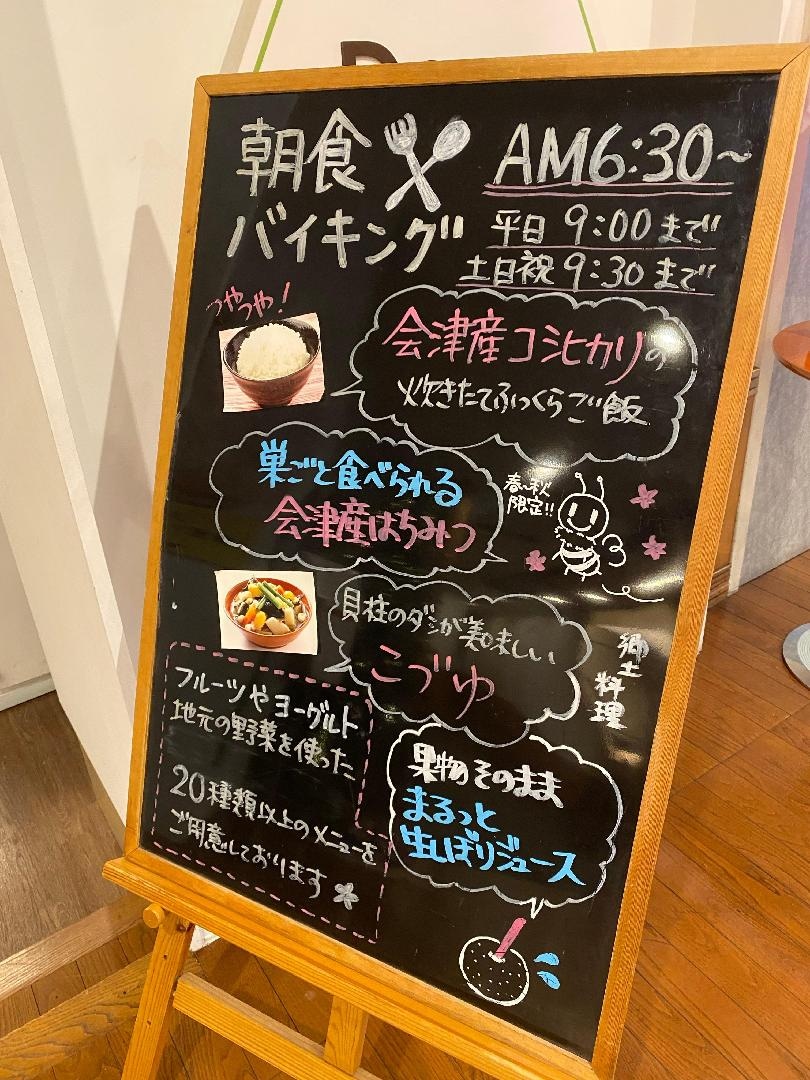 朝食
バイキング
AM6:30~
平日 9:00まで
土日祝 9:30まで
つやつや!
会津産コシヒカリの
炊きたてふっくらご飯
巣ごと食べられる
会津産はちみつ
春~秋
限定!!
貝柱のダシが美味しい
こづゆ
郷土料理
フルーツやヨーグルト
地元の野菜を使った
20種類以上のメニューを
ご用意しております
果物そのまま
まるっと
生しぼりジュース